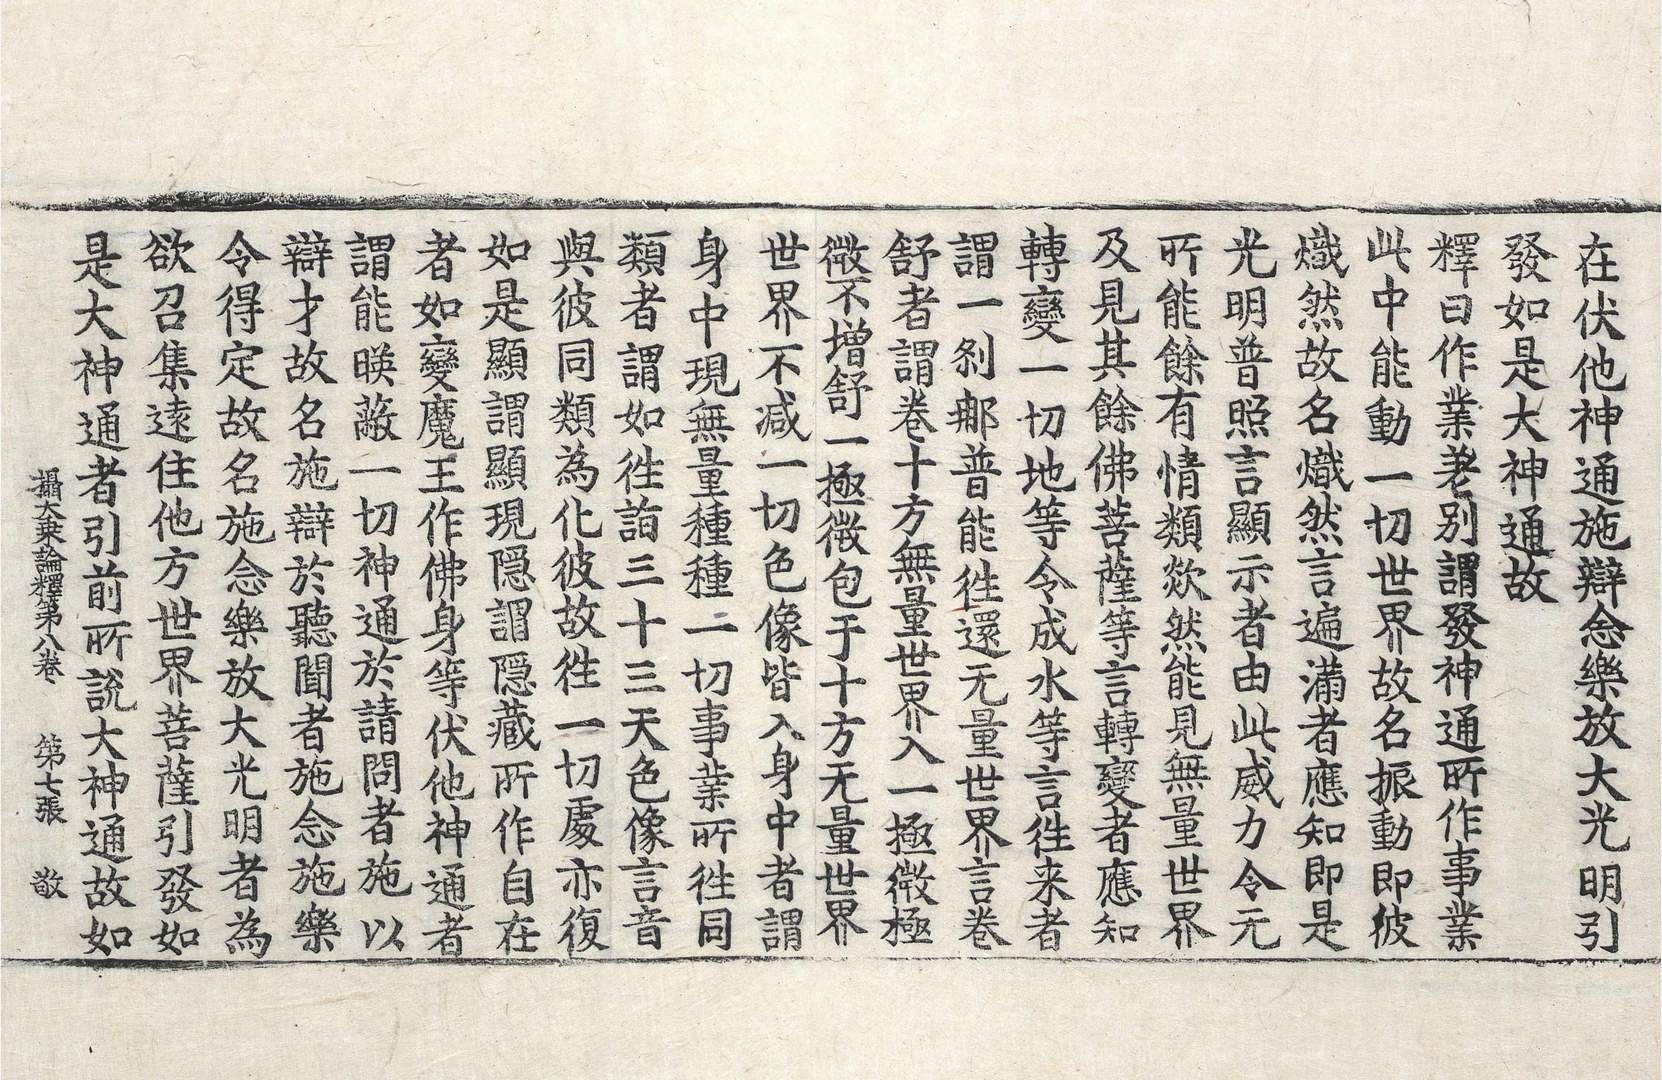 在伏他神通施辯念樂放大光明引
發如是大神通故
釋曰作業差別謂發神通所作事業
此中能動一切世界故名振動即彼
熾然故名熾然言遍滿者應知即是
光明普照言顯示者由此威力令无
所能餘有情類欻然能見無量世界
及見其餘佛菩薩等言轉變者應知
轉變一切地等令成水等言徃来者
謂一刹那普能徃還无量世界言卷
舒者謂卷十方無量世界入一極微極
微不增舒一極微包于十方无量世界
世界不减一切色像皆入身中者謂
身中現無量種種一切事業所徃同
類者謂如徃詣三十三天色像言音
與彼同類為化彼故徃一切處亦復
如是顯謂顯現隱謂隱藏所作自在
者如變魔王作佛身等伏他神通者
謂能暎蔽一切神通於請問者施以
辯才故名施辯於聽聞者施念施樂
令得定故名施念樂放大光明者為
欲召集遠住他方世界菩薩引發如
是大神通者引前所說大神通故如
攝大乘論釋第八卷 第七張 敬